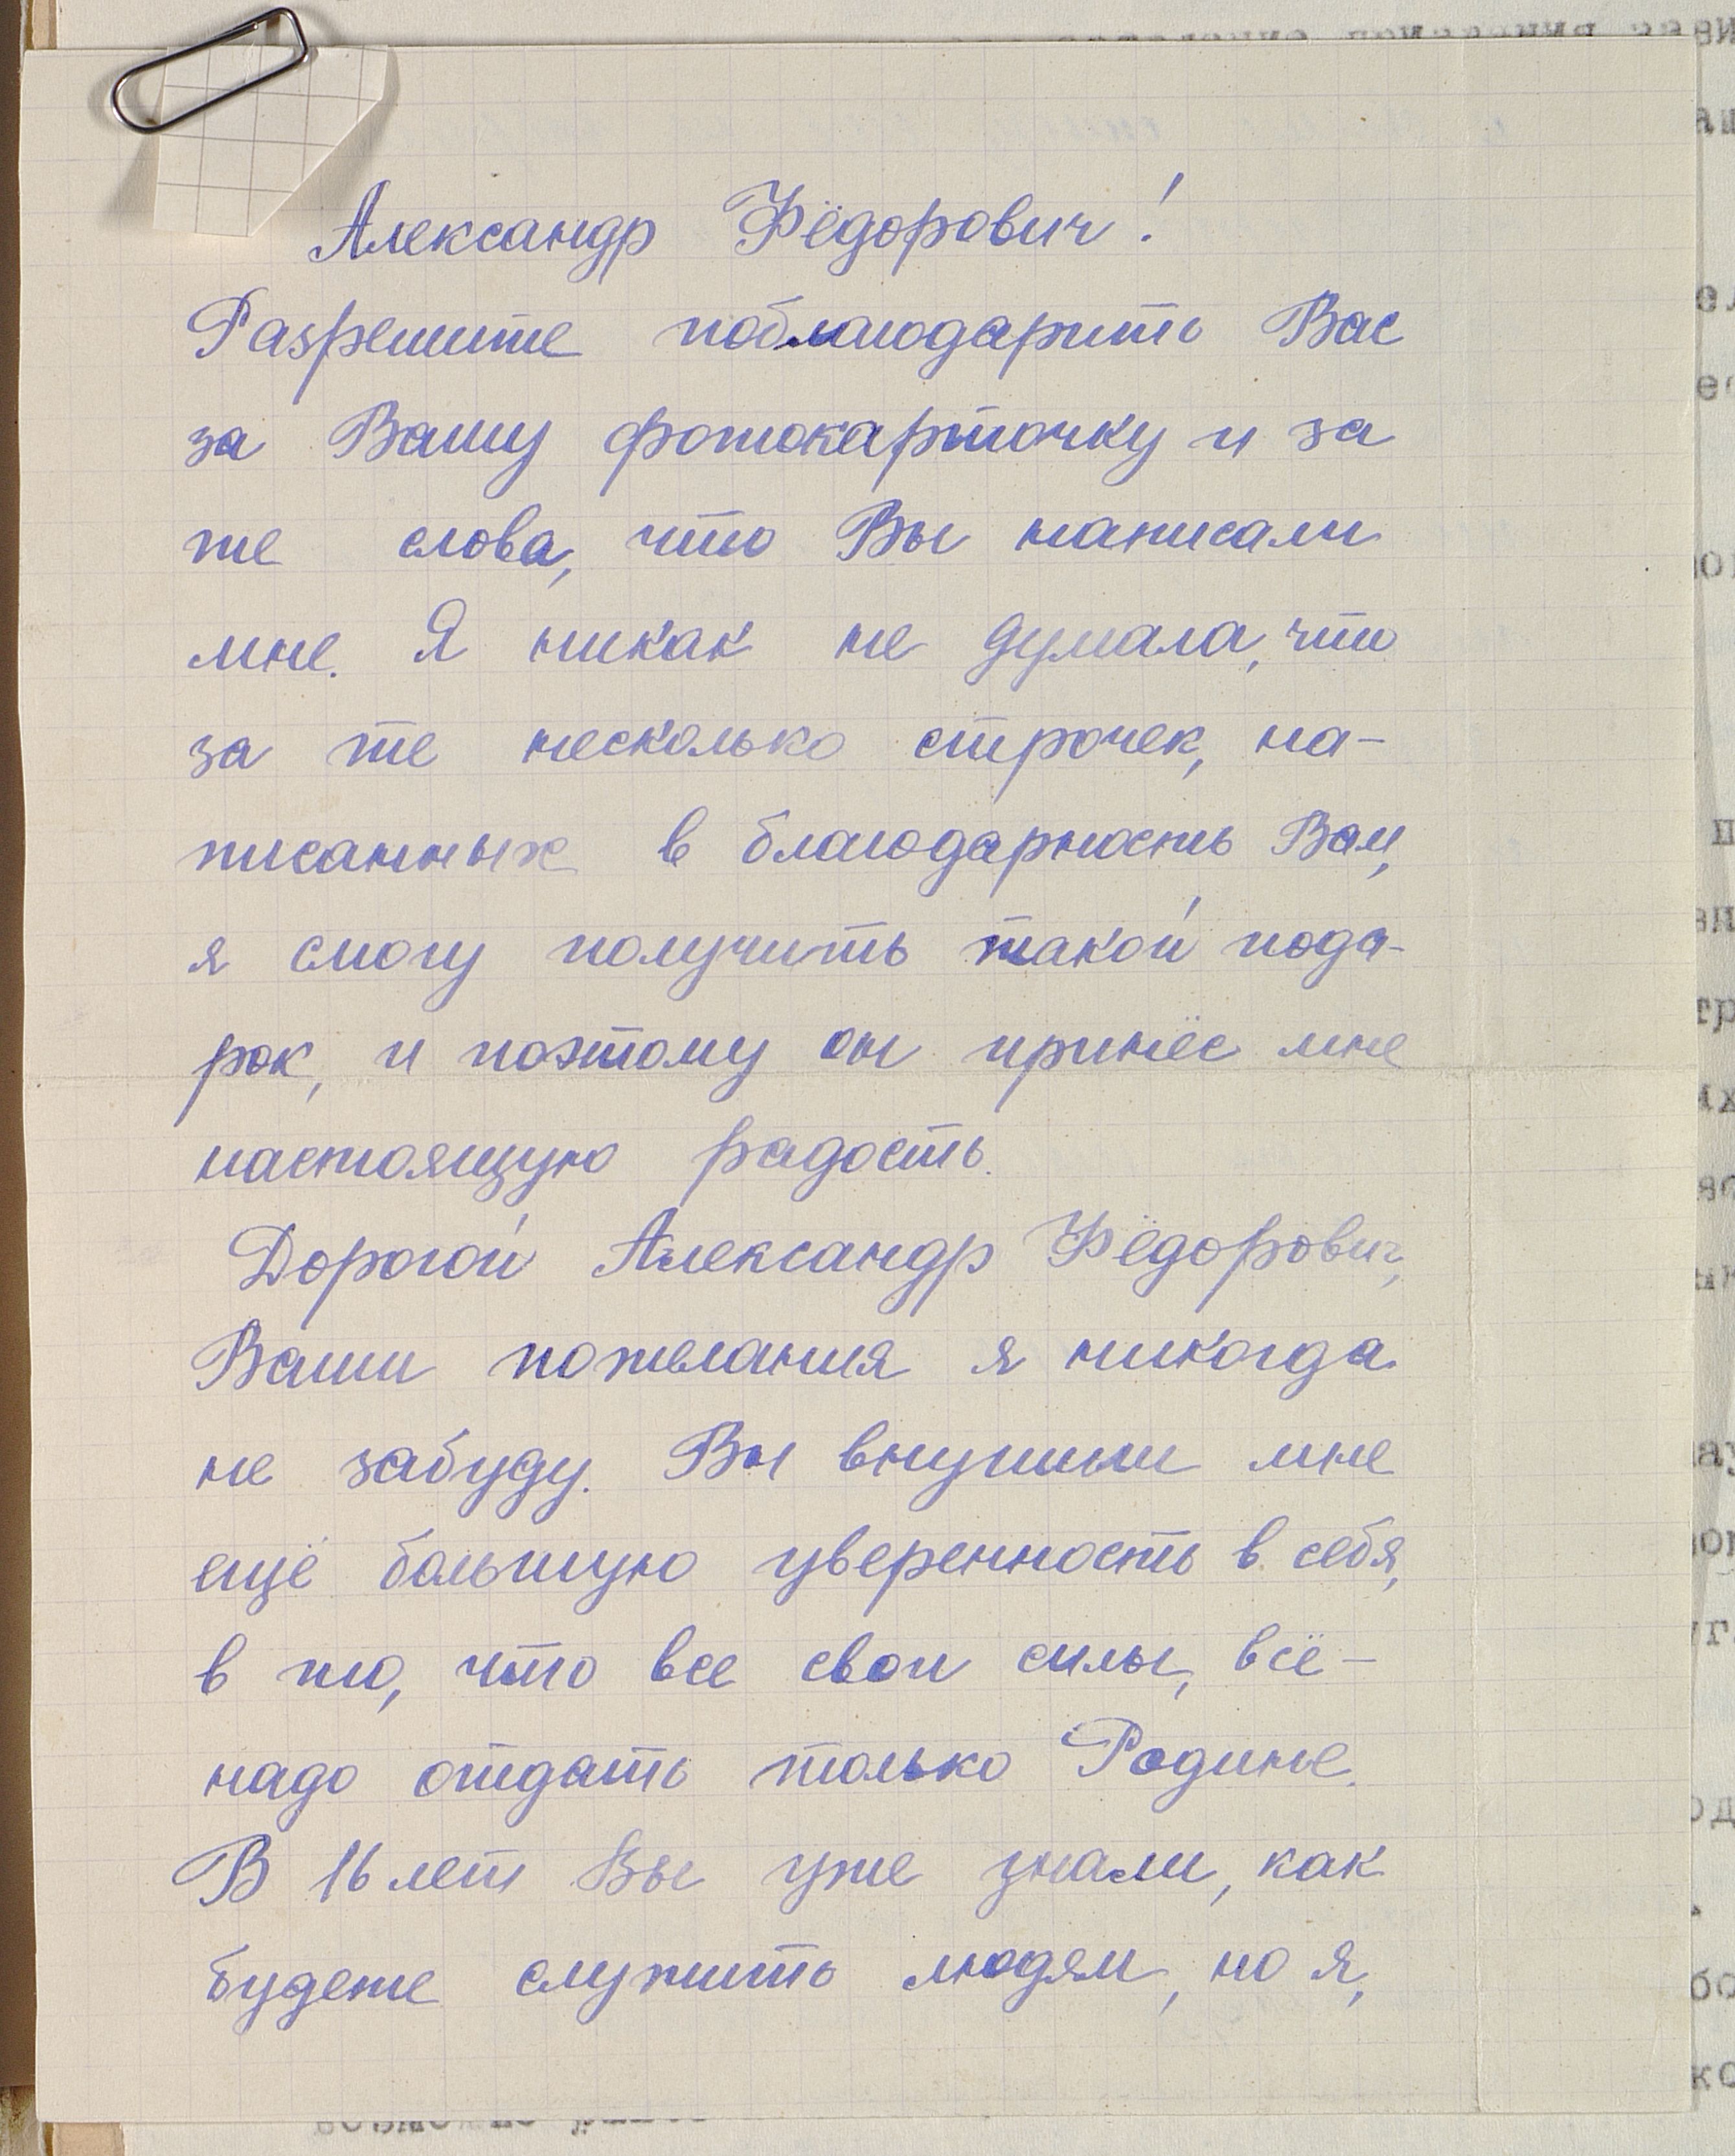 Александр Фёдорович!
Разрешите поблагодарить Вас
за Вашу фотокарточку и за
те слова, что Вы написали
мне. Я никак не думала, что
за те несколько строчек, на-
писанных в благодарность Вам,
я смогу получить такой пода-
рок, и поэтому он принёс мне
настоящую радость.
Дорогой Александр Фёдорович,
Ваши пожелания я никогда
не забуду. Вы внушили мне
ещё большую уверенность в себя,
в то, что все свои силы, всё –
надо отдать только Родине.
В 16 лет Вы уже знали, как
будете служить людям, но я,